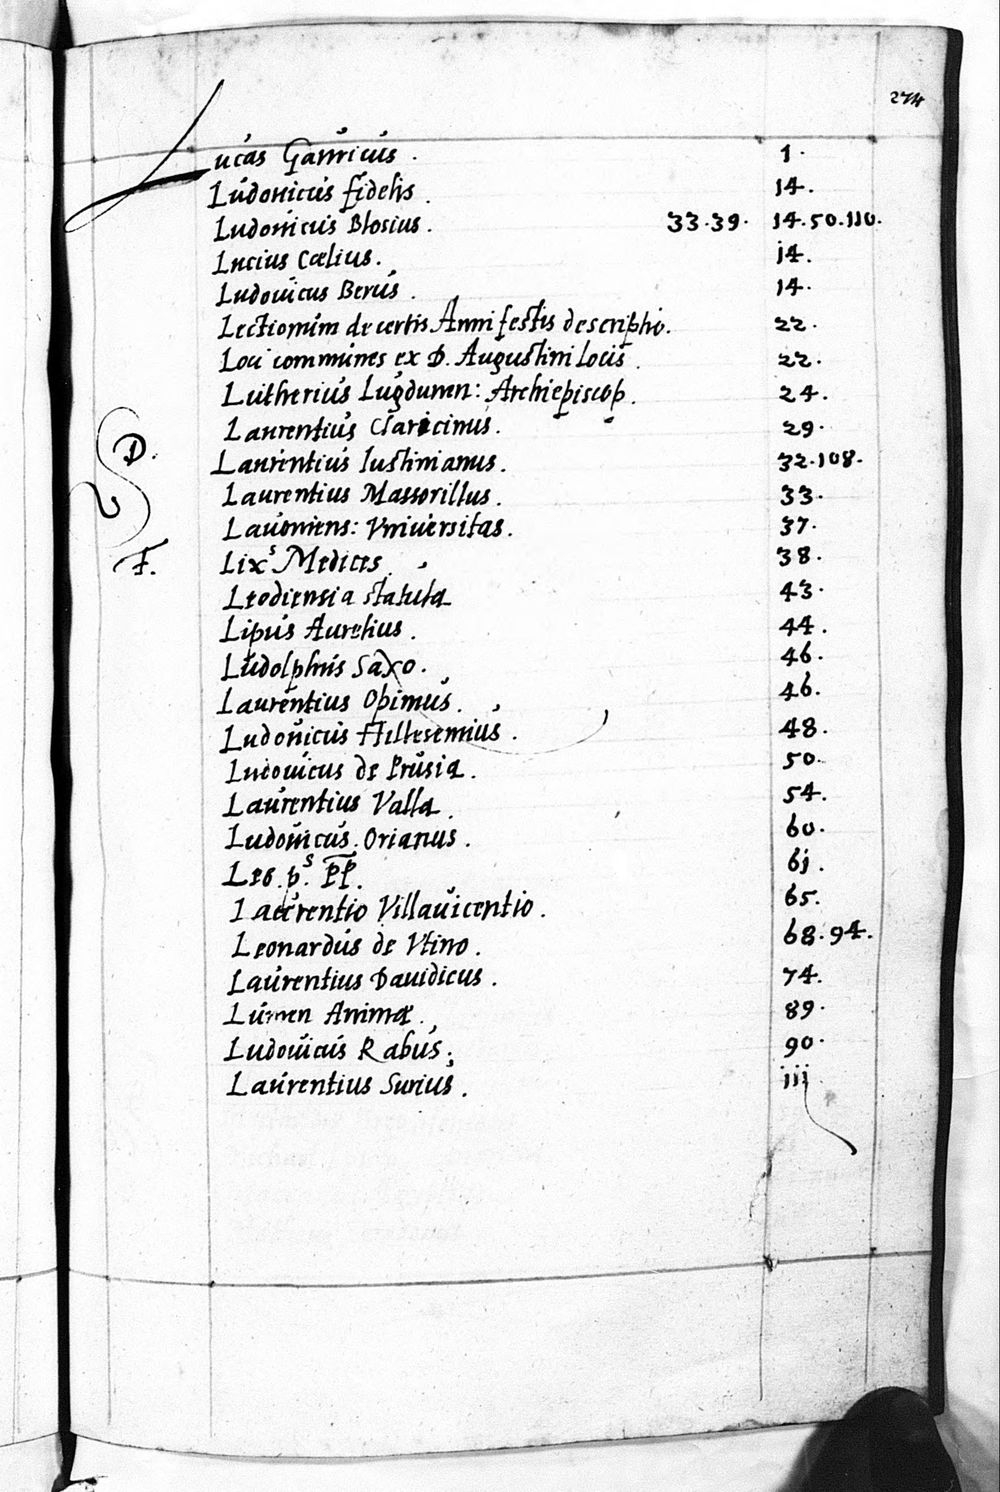 274
Lucas Gauricus. 1.
Ludouicus fidelis. 14.
Ludouicus Blosius. 33.39. 14.50.110.
Lucius Cœlius. i4.
Ludouicus Berus. 14.
Lectionum de certis Anni festis descriptio. 22.
Loci communes ex D. Augustini locis. 22.
Lutherius Lugdunen: Archiepiscop. 24.
Laurentius Claricinus. 29.
D. Laurentius Iustinianus. 32.108.
Laurentius Massorillus. 33.
Lauoniens: Vniuersitas. 37.
F. Lixs Medices. 38.
Leodiensia statuta 43.
Lipus Aurelius. 44.
Ludolphus Saxo. 46.
Laurentius Opimus. 46.
Ludouicus Hillesemius. 48.
Ludouicus de Prusia. 50.
Laurentius Valla. 54.
Ludouicus Orianus. 60.
Leo ps. PP. 6i.
Laurentio Villauicentio. 65.
Leonardus de Vtino. 68.94.
Laurentius Dauidicus. 74.
Lumen Animæ. 89.
Ludouicus Rabus. 90.
Laurentius Surius. iii